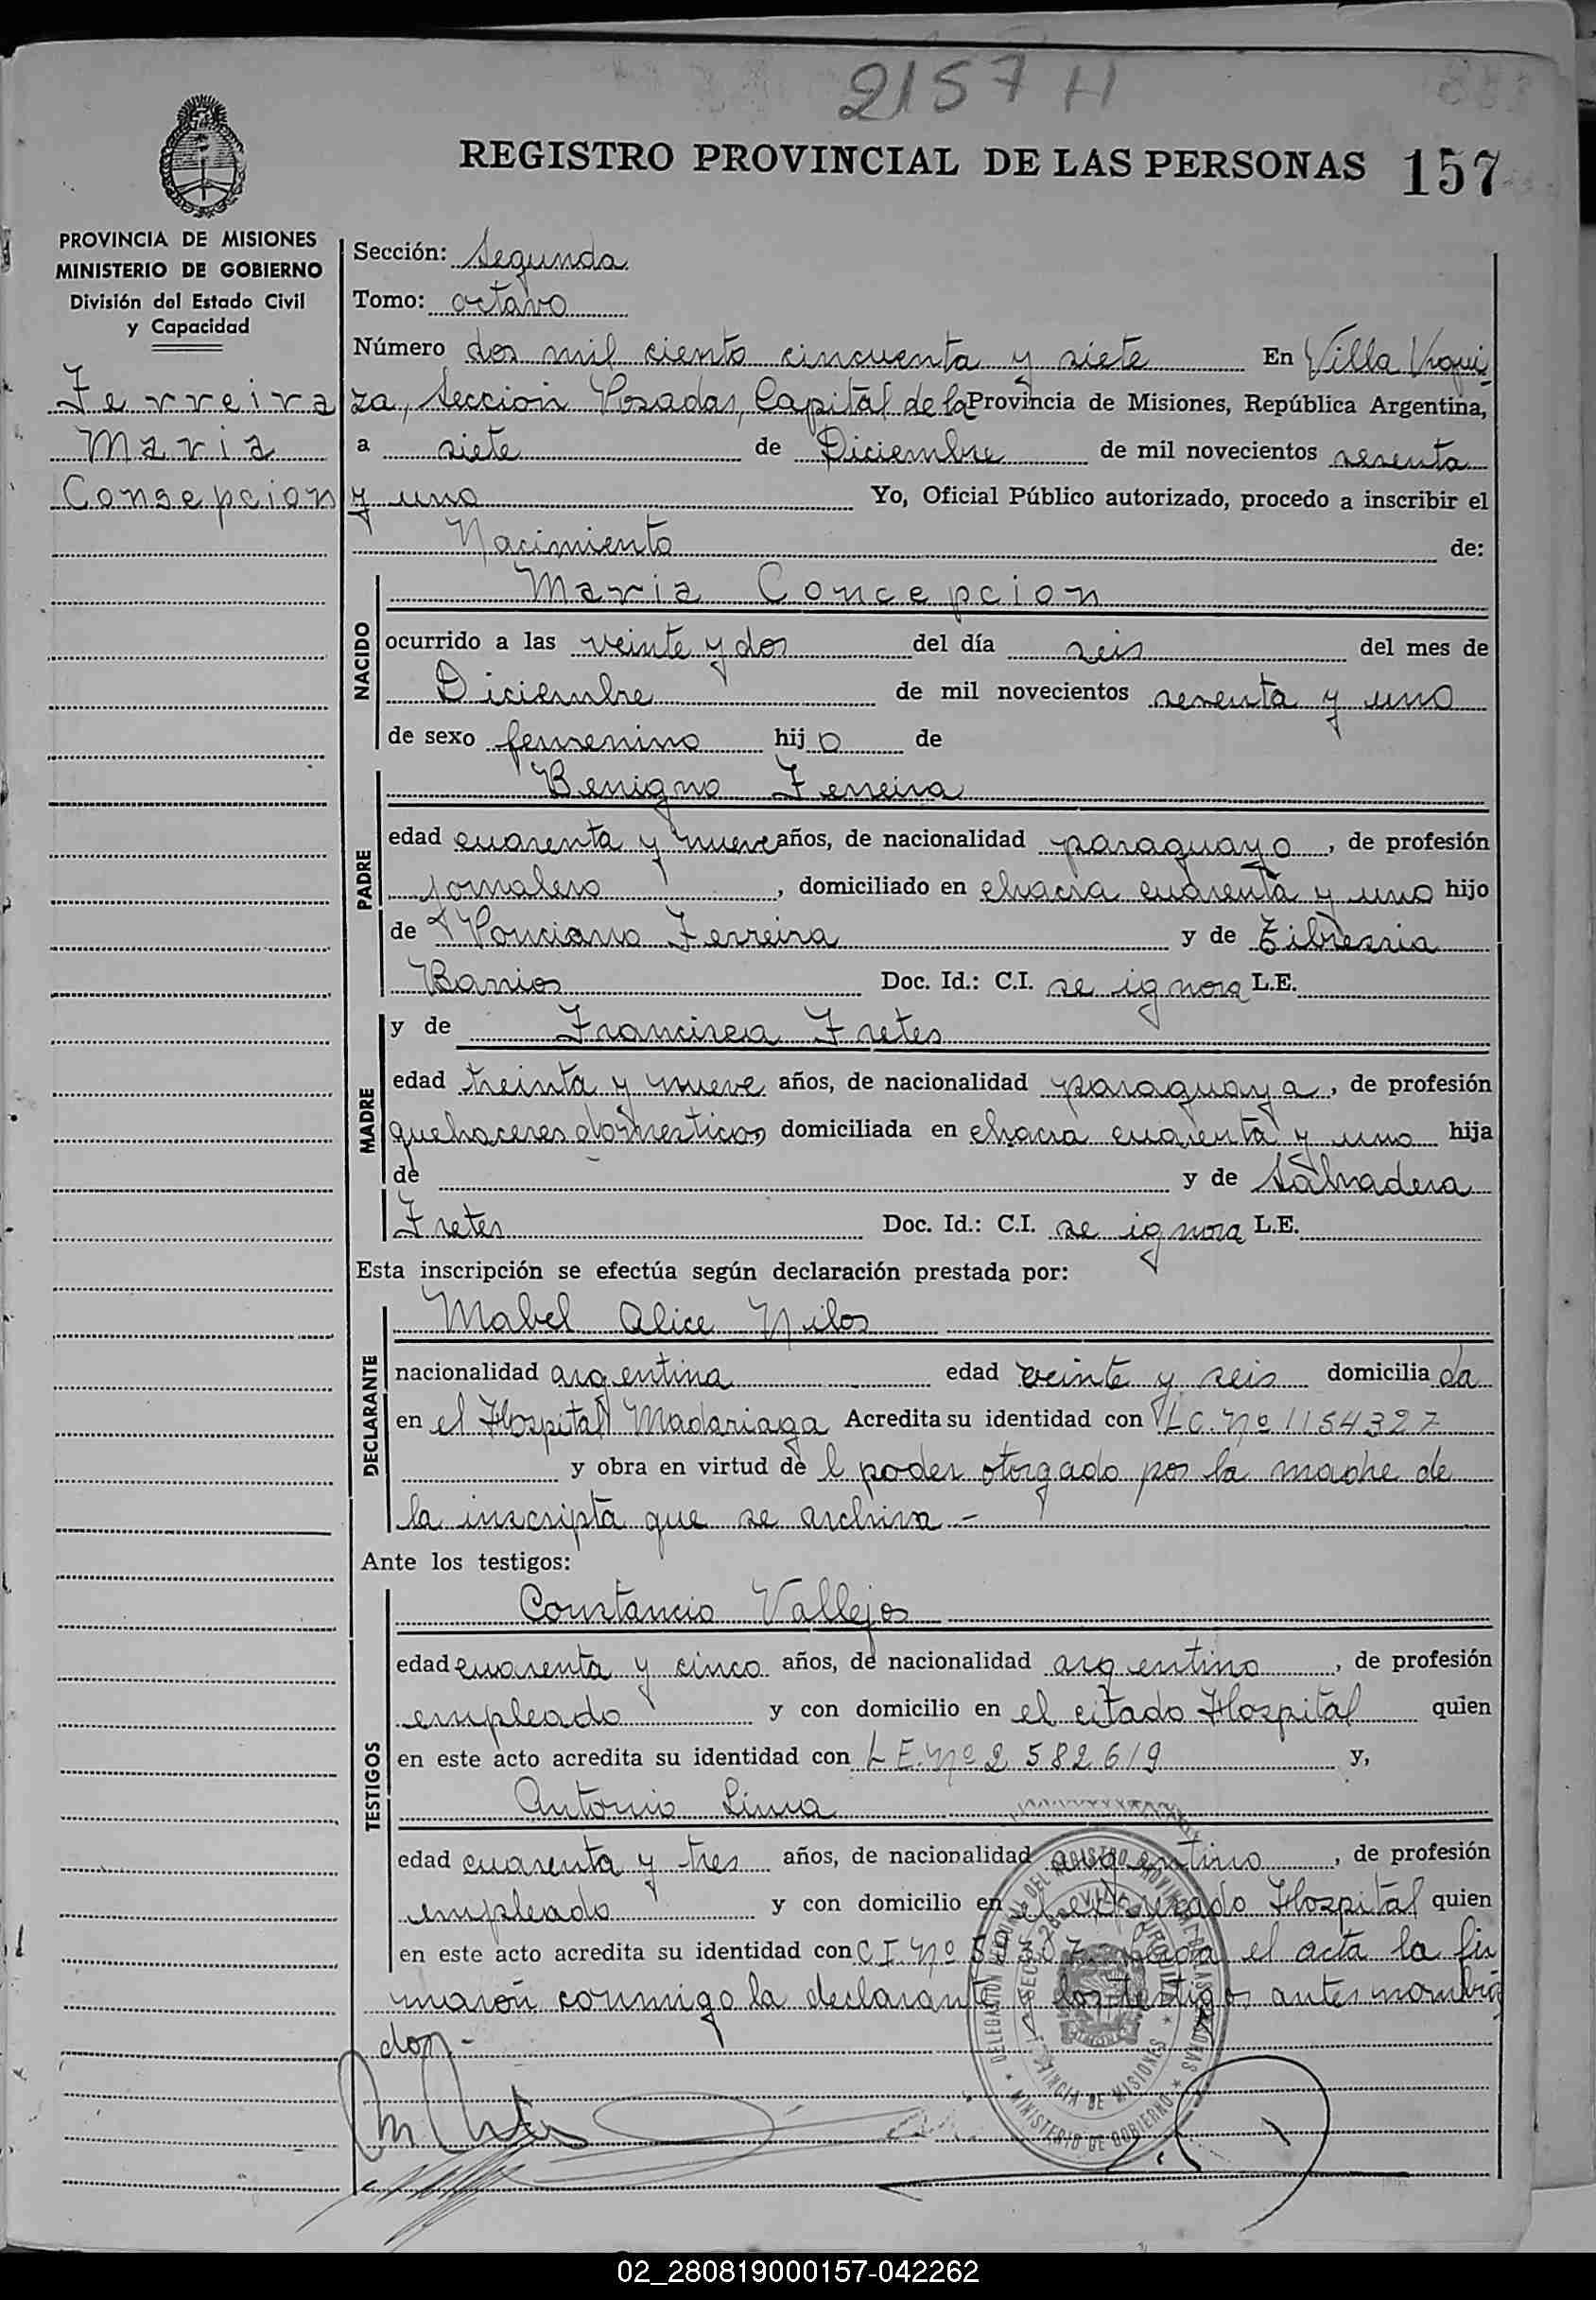 2157 H
REGISTRO PROVINCIAL DE LAS PERSONAS 157
PROVINCIA DE MISIONES
MINISTERIO DE GOBIERNO
División del Estado Civil
y Capacidad
Ferreira
Maria
Consepcion
Sección: Segunda
Tomo: octavo
Número dos mil ciento cincuenta y siete En Villa Urqui-
za, Seccion Posadas, Capital de la Provincia de Misiones, República Argentina,
a siete de Diciembre de mil novecientos sesenta
y uno Yo, Oficial Público autorizado, procedo a inscribir el
Nacimiento de:
NACIDO
Maria Concepcion
ocurrido a las veinte y dos del día seis del mes de
Diciembre de mil novecientos sesenta y uno
de sexo femenino hijo de
PADRE
Benigno Ferreira
edad cuarenta y nueve años, de nacionalidad paraguayo, de profesión
jornalero, domiciliado en chacra cuarenta y uno hijo
de Ponciano Ferreira y de
Barrios Doc. Id.: C.I. se ignora L.E.
MADRE
y de Francisca Fretes
edad treinta y nueve años, de nacionalidad paraguaya, de profesión
quehaceres domesticos, domiciliada en chacra cuarenta y uno hija
de y de Salvadera
Fretes Doc. Id.: C.I. se ignora L.E.
Esta inscripción se efectúa según declaración prestada por:
DECLARANTE
Mabel Alice
nacionalidad argentina edad veinte y seis domiciliada
en el Hospital Madariaga Acredita su identidad con L C. Nº 1154327
y obra en virtud de l poder otorgado por la madre de
la inscripta que se archiva -
Ante los testigos:
TESTIGOS
Constancio Vallejos
edad cuarenta y cinco años, de nacionalidad argentino, de profesión
empleado y con domicilio en el citado Hospital quien
en este acto acredita su identidad con L E. Nº 2 582 619 y,
Antonio Lima
edad cuarenta y tres años, de nacionalidad argentino, de profesión
empleado y con domicilio en el Hospital quien
en este acto acredita su identidad con C I. Nº el acta la fir
maron conmigo la declarante y los testigos antes nombra
dos -
DELEGACION DEL REGISTRO PROVINCIAL DE LAS PERSONAS
MINISTERIO DE GOBIERNO
PROVINCIA DE MISIONES
02_280819000157-042262